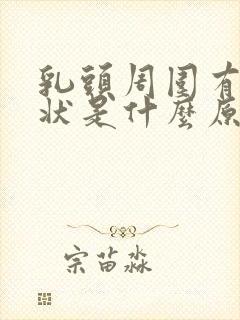 乳頭周围有
状是什麼原
宗苗淼